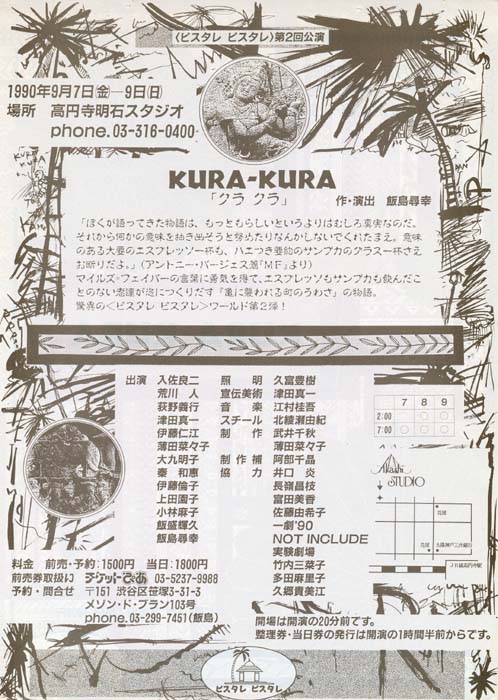 〈ビスタレ ビスタレ〉第2回公演
1990年9月7日(金)—9日(日)
場所 高円寺明石スタジオ
phone.03-316-0400
KURA-KURA
「クラ クラ」 作・演出 飯島尋幸
「ぼくが語ってきた物語は、もっともらしいというよりはむしろ真実なのだ。
それから何かの意味を抽き出そうと努めたりなんかしないでくれたまえ。意味
のある大麦のエスプレッソ一杯も、ハエつき要能のサンブカのグラス一杯さえ
お断りだよ。」(アントニー・バージェス著『MF』より)
マイルズ・フェイバーの言葉に勇気を得て、エスプレッソもサンブカも飲んだこ
とのない恋達が遂につくりだす『亀に襲われる町のうわさ』の物語。
驚異の〈ビスタレ ビスタレ〉ワールド第2弾!
出演 入佐良二 照明 久富豊樹
荒川 人 宣伝美術 津田真一
荻野義行 音楽 江村桂吾
津田真一 スチール 北綾瀬由紀
伊藤仁江 制作 武井千秋
薄田菜々子 薄田菜々子
大九明子 制作補 阿部千晶
秦 和恵 協力 井口 炎
伊藤倫子 長嶺昌枝
上田園子 富田美香
小林麻子 佐藤由希子
飯盛輝久 一劇'90
飯島尋幸 NOT INCLUDE
実験劇場
竹内三菜子
多田麻里子
久郷貴美江
7 8 9
2:00 ○ ○
7:00 ○ ○ ○
Akashi
STUDIO
JR線高円寺駅
料金 前売・予約:1500円 当日:1800円
前売券取扱い チケットぴあ 03-5237-9988
予約・問合せ 〒151 渋谷区笹塚3-31-3
メゾン・ド・ブラン103号
phone.03-299-7451(飯島)
開場は開演の20分前です。
整理券・当日券の発行は開演の1時間半前からです。
ビスタレ ビスタレ